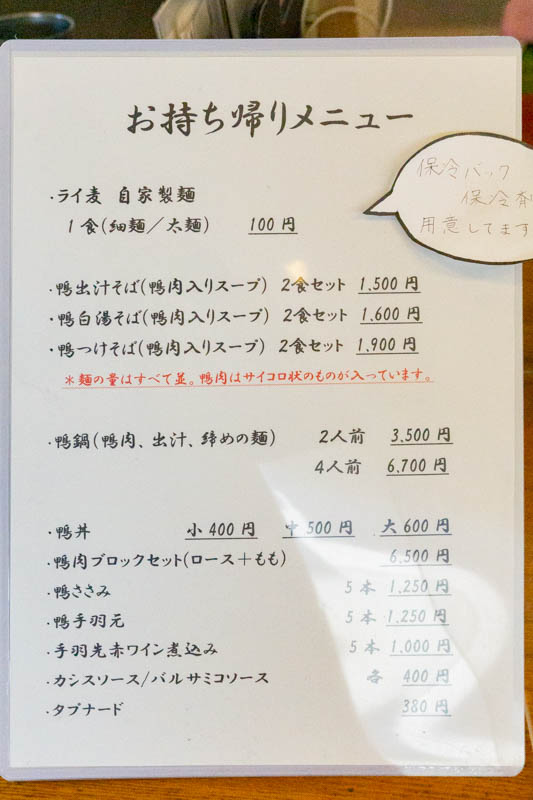 お持ち帰りメニュー
保冷バック
保冷剤
用意してます
・ライ麦 自家製麺
1食(細麺／太麺) 100円
・鴨出汁そば(鴨肉入りスープ) 2食セット 1.500円
・鴨白湯そば(鴨肉入りスープ) 2食セット 1.600円
・鴨つけそば(鴨肉入りスープ) 2食セット 1.900円
＊麺の量はすべて並。鴨肉はサイコロ状のものが入っています。
・鴨鍋(鴨肉、出汁、締めの麺) 2人前 3.500円
4人前 6,700円
・鴨丼 小400円 中500円 大600円
・鴨肉ブロックセット(ロース＋もも) 6.500円
・鴨ささみ 5本 1.250円
・鴨手羽元 5本 1,250円
・手羽先赤ワイン煮込み 5本 1.000円
・カシスソース/バルサミコソース 各 400円
・タプナード 380円